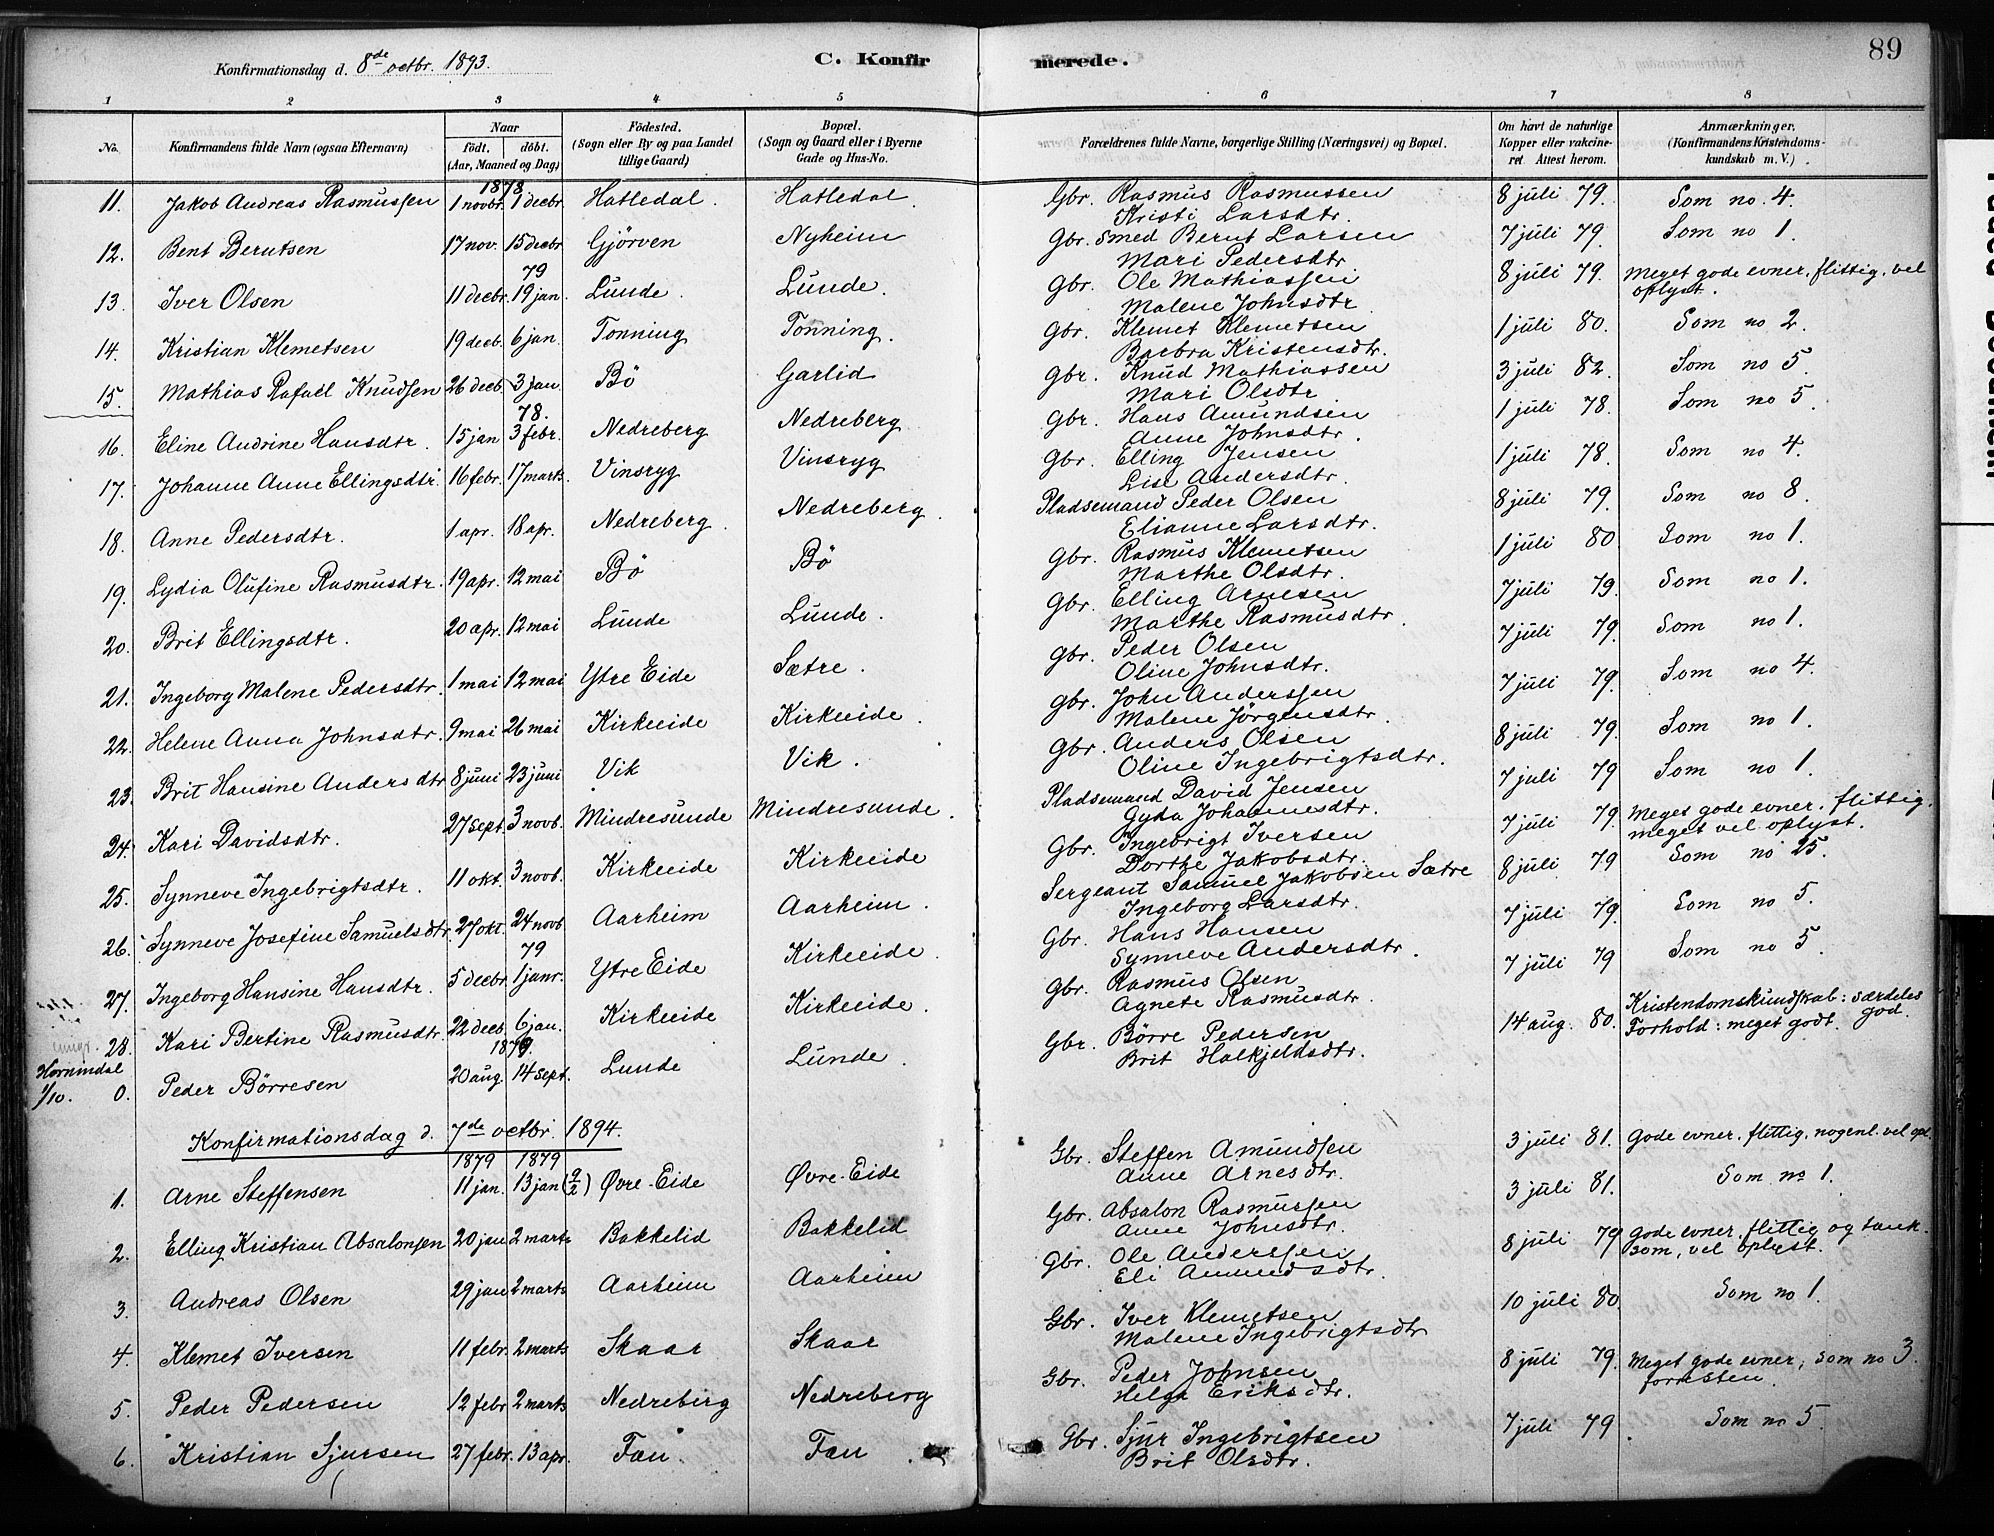 89
Konfirmationsdag d. 8de octbr. 1893.
C. Konfirmerede.
1 2 3 4 5 6 7 8
No. Konfirmandens fulde Navn (ogsaa Efternavn) Naar födt. döbt. (Aar, Maaned og Dag) Födested. (Sogn eller By og paa Landet tillige Gaard) Bopæl. (Sogn og Gaard eller i Byerne Gade og Hus-No. Forældrenes fulde Navne, borgerlige Stilling (Næringsvei) og Bopæl. Om havt de naturlige Kopper eller vakcineret. Attest herom. Anmærkninger. (Konfirmandens Kristendomskundskab m. V.)
1878
11. Jakob Andreas Rasmussen 1 novbr. 1 decbr. Hatledal. Hatledal. Gbr. Rasmus Rasmussen 8 juli 79. Som no. 4.
Kristi Larsdtr.
12. Bent Berntsen 17 nov. 15 decbr Gjörven Nyheim Gbr. Smed Bernt Larsen 7 juli 79. Som no 1.
Mari Pedersdtr
79
13. Iver Olsen 11 decbr. 19 jan. Lunde. Lunde. Gbr. Ole Mathiassen 8 juli 79. Meget gode evner, flittig, vel oplyst.
Malene Johnsdtr
14. Kristian Klemetsen 19 decb. 6 jan. Tonning Tonning. Gbr. Klemet Klemetsen 1 juli 80. Som no 2.
Barbra Kristensdtr.
15. Mathias Rafael Knudsen 26 decb. 3 jan. Bö Garlid Gbr. Knud Mathiassen 3 juli 82. Som no 5.
Mari Olsdtr
78.
16. Eline Andrine Hansdtr. 15 jan 3 febr. Nedreberg Nedreberg Gbr. Hans Amundsen 1 juli 78. Som no 5.
Anne Johnsdtr.
17. Johanne Anne Ellingsdtr 16 febr. 17 marts. Vinsryg Vinsryg Gbr. Elling Jensen 1 juli 78. Som no 4.
Lise Andersdtr.
18. Anne Pedersdtr. 1 apr. 18 apr. Nedreberg. Nedreberg. Pladsemand Peder Olsen 8 juli 79. Som no 8.
Elianne Larsdtr.
19. Lydia Olufine Rasmusdtr. 19 apr. 12 mai Bö Bö Gbr. Rasmus Klemetsen 1 juli 80. Som no 1.
Marthe Olsdtr.
20. Brit Ellingsdtr. 20 apr. 12 mai Lunde Lunde. Gbr. Elling Arnesen 7 juli 79. Som no 1.
Marthe Rasmusdtr.
21. Ingeborg Malene Pedersdtr. 1 mai 12 mai Ytre Eide Sætre. Gbr. Peder Olsen 7 juli 79. Som no 1.
Oline Johnsdtr.
22. Helene Anna Johnsdtr. 9 mai 26 mai Kirkeeide Kirkeeide. Gbr. John Anderssen 7 juli 79. Som no 4.
Malene Jörgensdtr.
23. Brit Hansine Andersdtr 8 juni 23 juni Vik Vik. Gbr. Anders Olsen 8 juli 79. Som no 1.
Oline Ingebrigtsdtr.
24. Kari Davidsdtr. 27 sept. 3 novb. Mindresunde Mindresunde. Pladsemand David Jensen 7 juli 79 Som no 1.
Gyda Johannesdtr.
25. Synneve Ingebrigtsdtr. 11 okt. 3 novb. Kirkeeide Kirkeeide Gbr. Ingebrigt Iversen 7 juli 79. Meget gode evner, flittig, meget vel oplyst.
Dorthe Jakobsdtr.
26. Synneve Josefine Samuelsdtr. 27 okt. 24 novb Aarheim Aarheim. Sergeant Samuel Jakobsen Sætre 8 juli 79 Som no 25.
Ingeborg Larsdtr.
79
27. Ingeborg Hansine Hansdtr. 5 decbr. 1 janr. Ytre Eide Kirkeeide. Gbr. Hans Hansen 7 juli 79. Som no 5.
Synneve Andersdtr.
28. Kari Bertine Rasmusdtr. 22 decb. 6 jan. Kirkeeide Kirkeeide. Gbr. Rasmus Olsen 7 juli 79 Som no 5.
Agnete Rasmusdtr.
1879
Hornindal 1/10. 0. Peder Börresen 20 aug. 14 sept. Lunde Lunde. Gbr. Börre Pedersen 14 aug. 80. Kristendomskundskab: særdeles god. Forhold: meget godt.
Brit Halkjeldsdtr.
Konfirmationsdag d. 7de octbr. 1894.
1879 1879
1. Arne Steffensen 11 jan. 13 jan (9/2) Øvre-Eide Øvre-Eide Gbr. Steffen Amundsen 3 juli 81. Gode evner, flittig, nogenl. vel opl.
Anne Arnesdtr.
2. Elling Kristian Absalonsen 20 jan 2 marts Bakkelid Bakkelid Gbr. Absalon Rasmussen 3 juli 81. Som no 1.
Anne Johnsdtr.
3 Andreas Olsen 29 jan 2 marts Aarheim Aarheim Gbr. Ole Anderssen 8 juli 79 Gode evner, flittig og tanksom, vel oplyst.
Eli Amundsdtr.
4. Klemet Iversen 11 febr. 2 marts Skaar Skaar Gbr. Iver Klemetsen 10 juli 80. Som no 1.
Malene Ingebrigtsdtr
5. Peder Pedersen 12 febr 2 marts Nedreberg Nedreberg Gbr. Peder Johnsen 8 juli 79. Meget gode evner, som no 3. forresten.
Helge Eriksdtr.
6. Kristian Sjursen 27 febr. 13 apr. Fau Fau. Gbr. Sjur Ingebrigtsen 7 juli 79. Som no 5.
Brit Olsdtr.